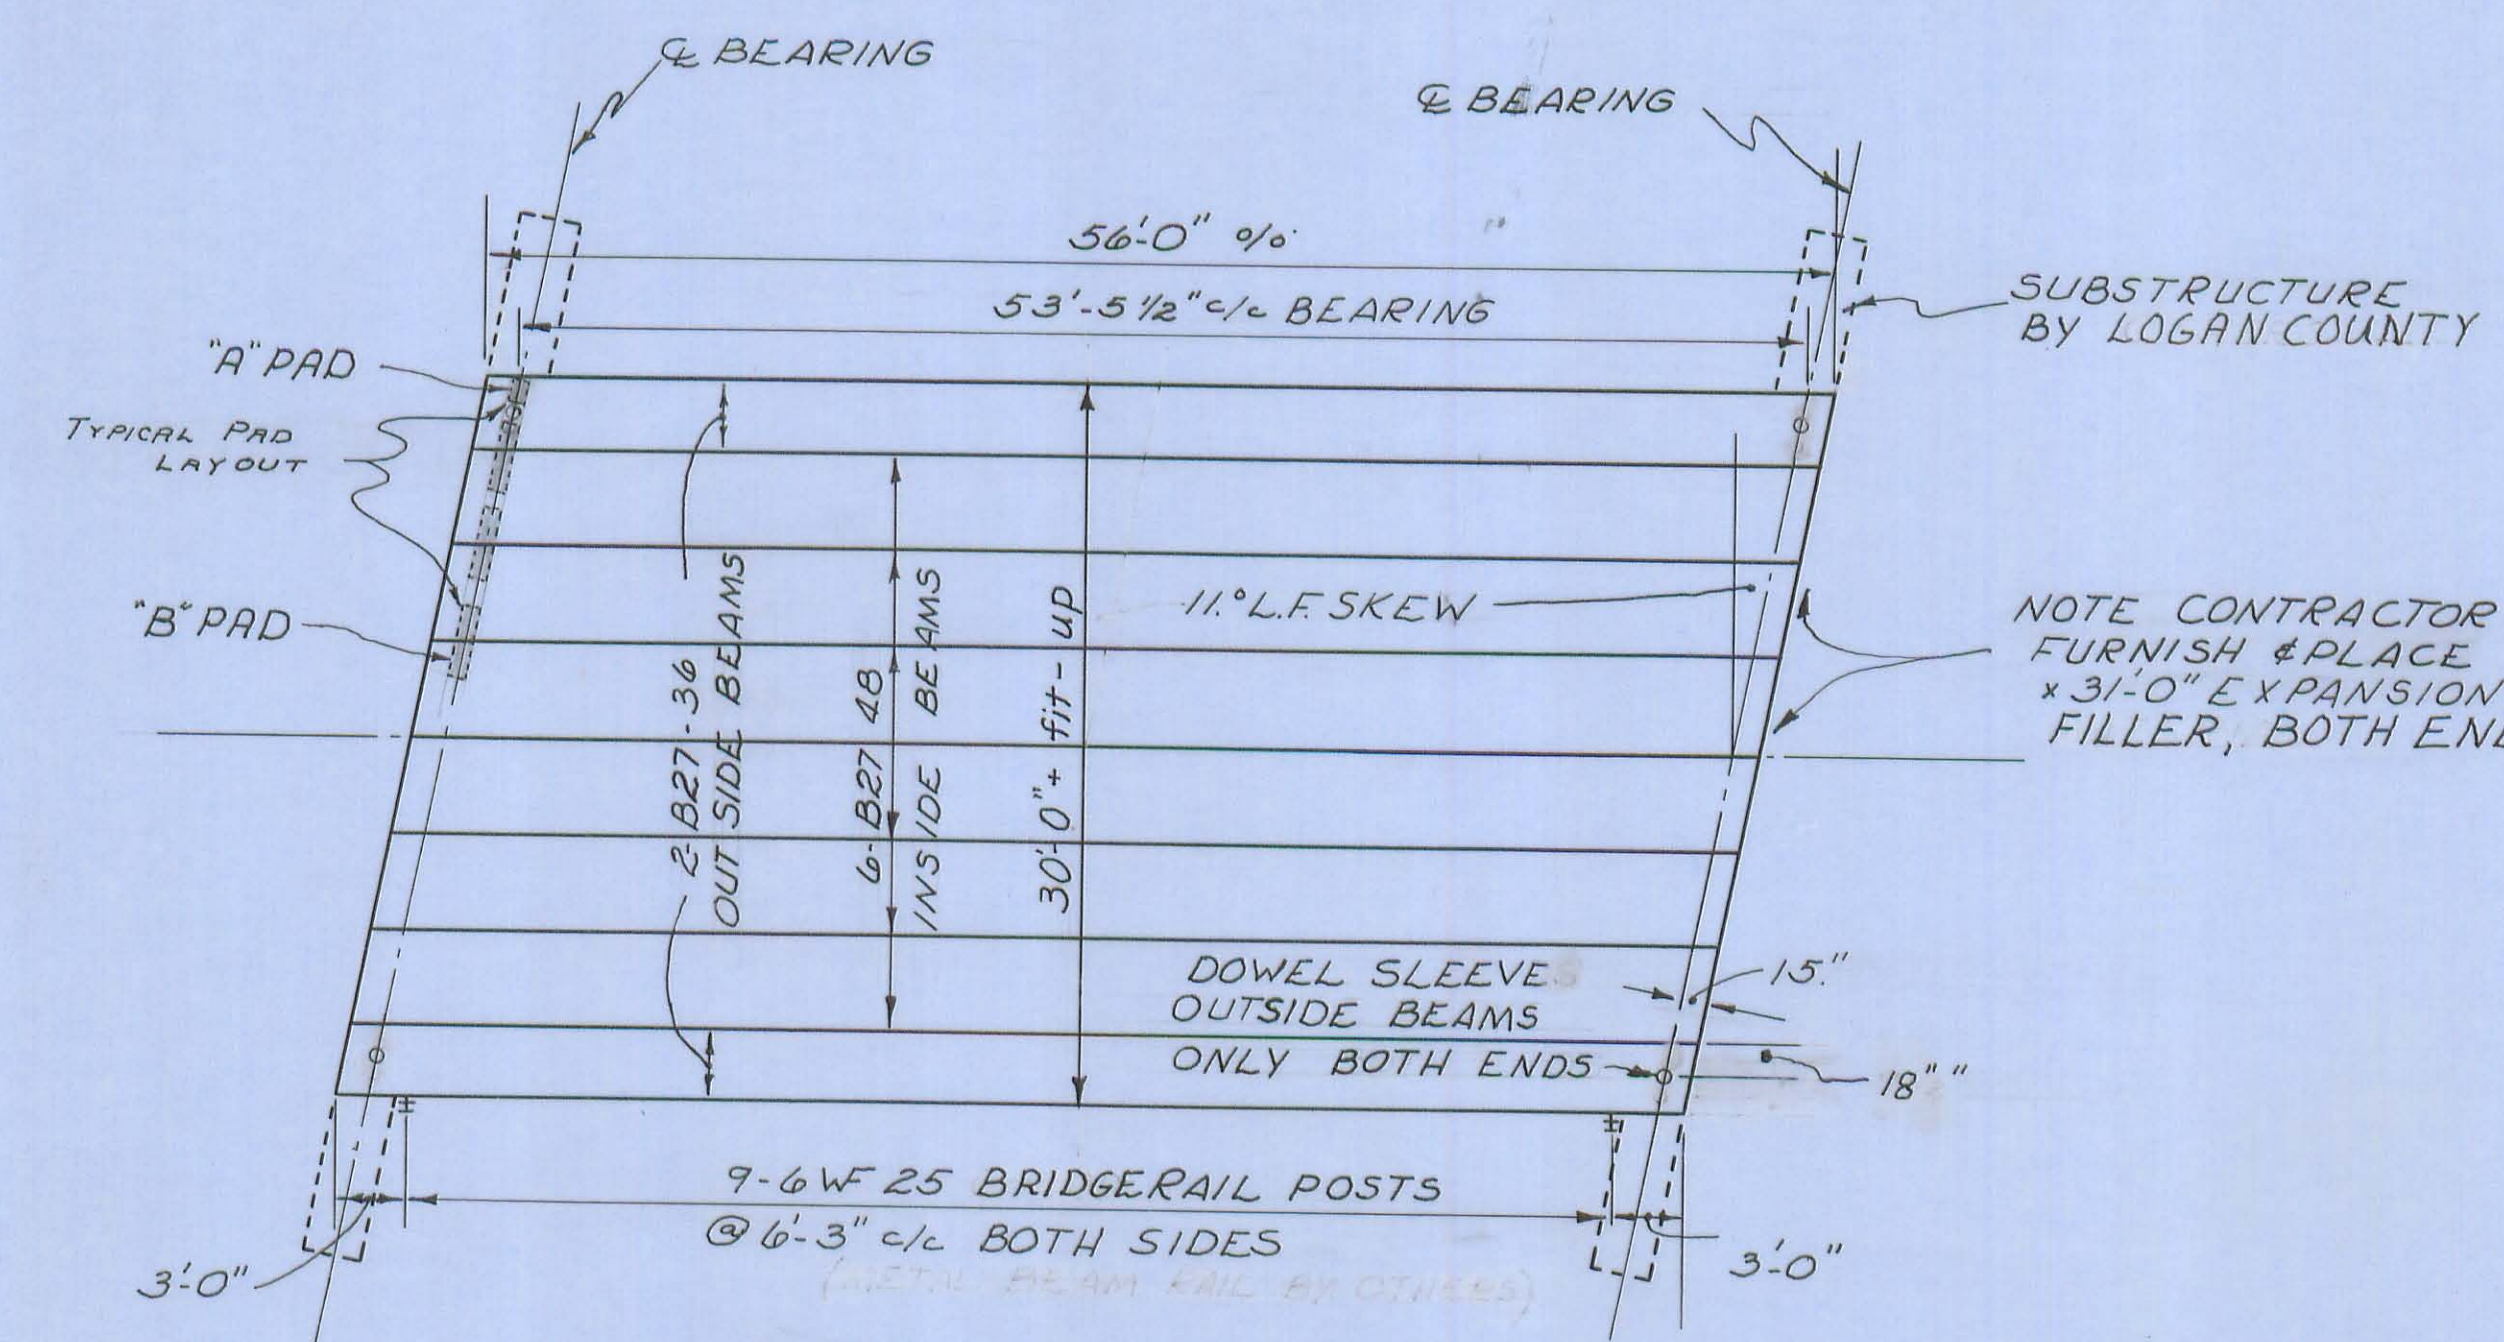 ℄ BEARING
℄ BEARING
56'-0" o/o
53'-5 1/2" c/c BEARING
SUBSTRUCTURE
BY LOGAN COUNTY
"A" PAD
TYPICAL PAD
LAYOUT
"B" PAD
2-B27-36
OUTSIDE BEAMS
6-B27 48
INSIDE BEAMS
30'-0"+ fit-up
11.° L.F. SKEW
NOTE CONTRACTOR
FURNISH & PLACE
x 31'-0" EXPANSION
FILLER, BOTH EN
DOWEL SLEEVE
OUTSIDE BEAMS
ONLY BOTH ENDS
15."
18" "
9-6 WF 25 BRIDGERAIL POSTS
@ 6'-3" c/c BOTH SIDES
(METAL BEAM RAIL BY OTHERS)
3'-0"
3'-0"